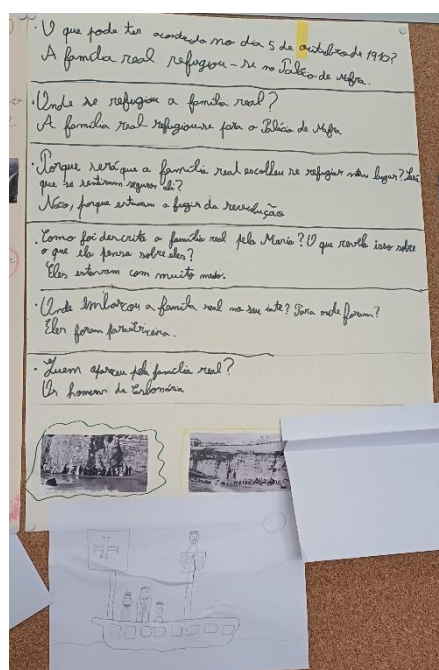 · O que pode ter acontecido no dia 5 de outubro de 1910?
A família real refugiou-se no Palácio de Mafra.
· Onde se refugiou a família real?
A família real refugiou-se para o Palácio de Mafra
· Porque será que a família real escolheu se refugiar neste lugar? Será
que se sentiram seguros ali?
Não, porque estavam a fugir da revolução
· Como foi descrita a família real pela Maria? O que revela isso sobre
o que ela pensa sobre eles?
Eles estavam com muito medo.
· Onde embarcou a família real no seu iate? Para onde foram?
Eles foram para Ericeira.
· Quem esperou pela família real?
Os homens da Carbonária